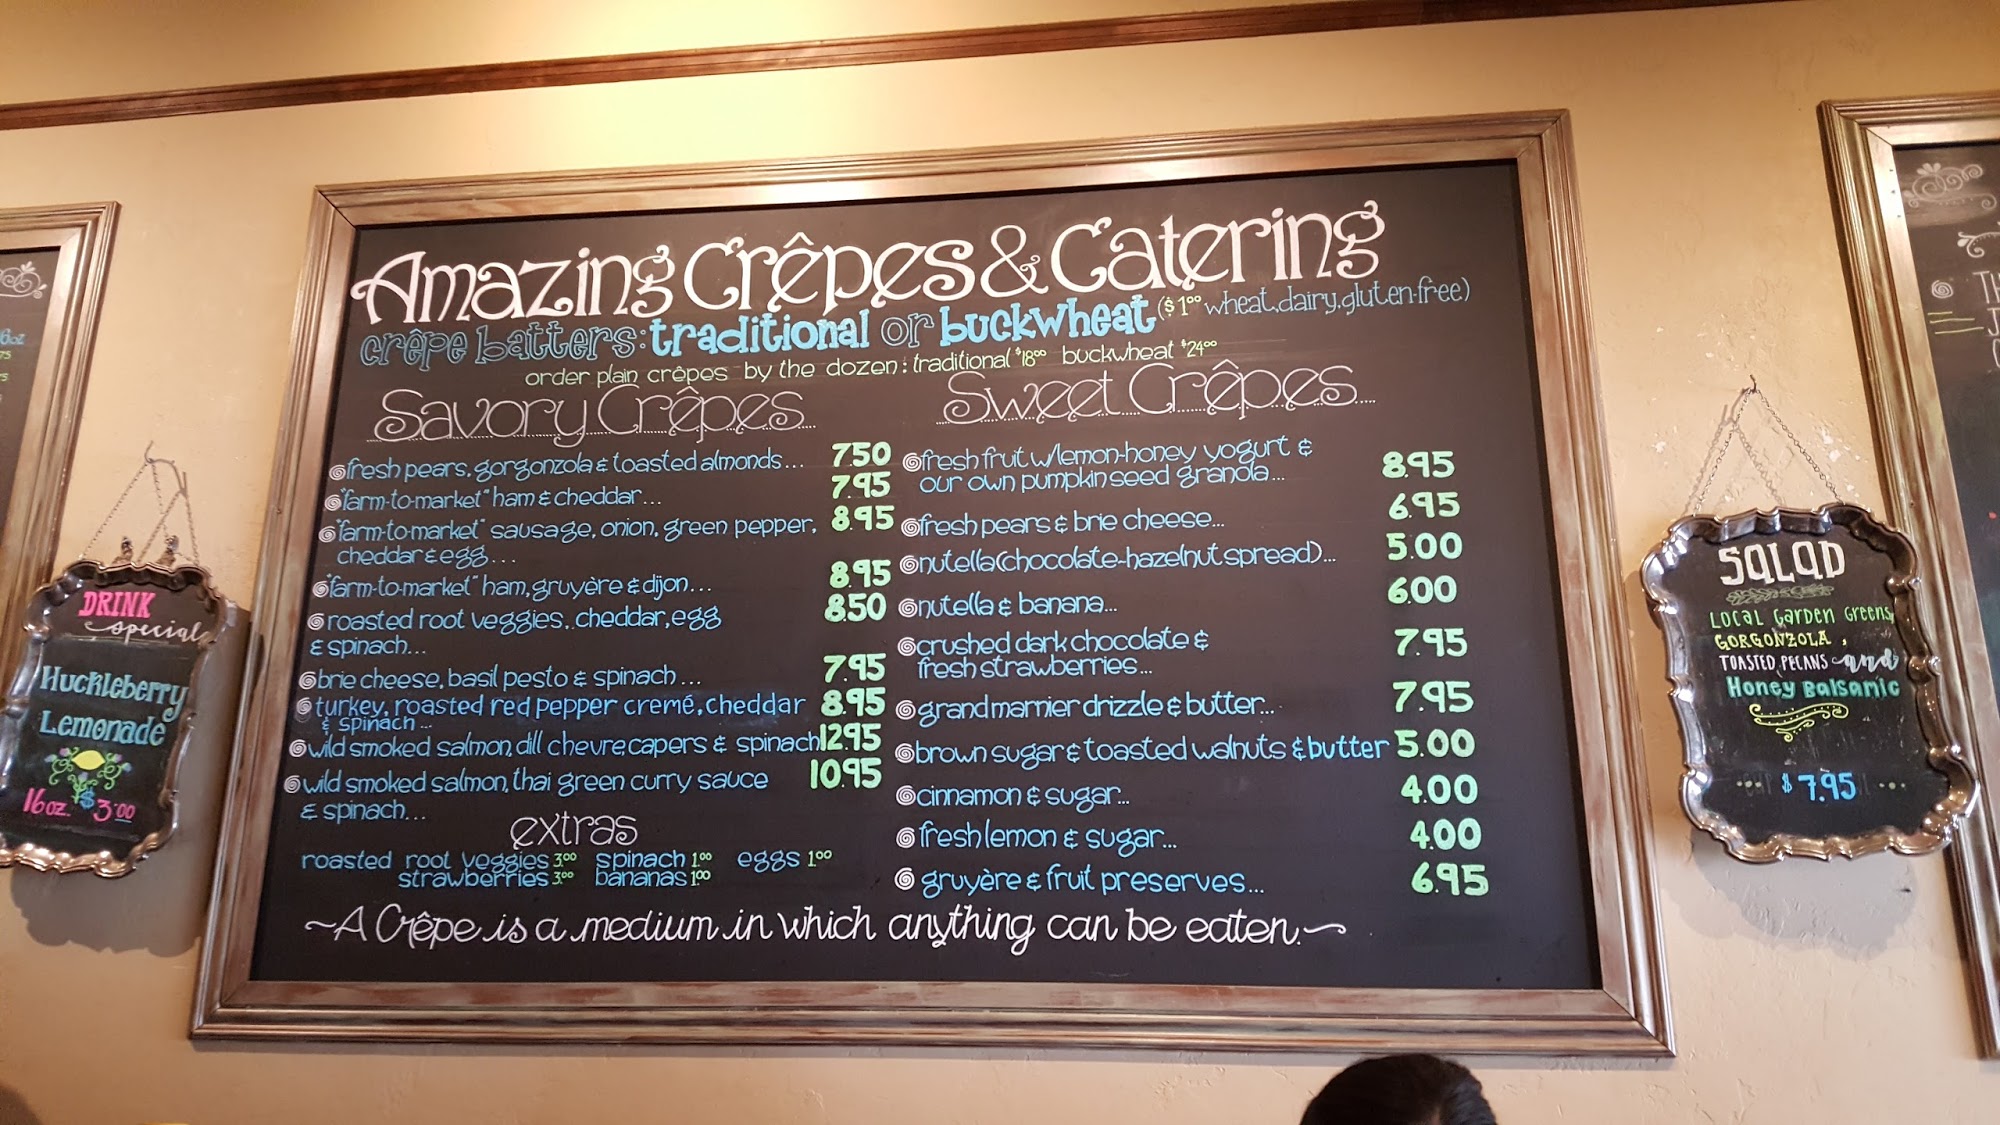 Amazing Crêpes & Catering
crêpe batters: traditional or buckwheat ($1.00 wheat.dairy.gluten.free)
order plain crêpes by the dozen: traditional $18.00 buckwheat $24.00
Savory Crêpes
fresh pears, gorgonzola & toasted almonds... 7.50
"farm-to-market" ham & cheddar... 7.95
"farm-to-market" sausage, onion, green pepper, 8.95
cheddar & egg...
"farm-to-market" ham, gruyère & dijon... 8.95
roasted root veggies, cheddar, egg 8.50
& spinach...
brie cheese, basil pesto & spinach... 7.95
turkey, roasted red pepper cremé, cheddar 8.95
& spinach...
wild smoked salmon, dill chevre capers & spinach 12.95
wild smoked salmon, thai green curry sauce 10.95
& spinach...
extras
roasted root veggies 3.00 spinach 1.00 eggs 1.00
strawberries 3.00 bananas 1.00
Sweet Crêpes
fresh fruit w/lemon-honey yogurt &
our own pumpkin seed granola... 8.95
fresh pears & brie cheese... 6.95
nutella (chocolate-hazelnut spread)... 5.00
nutella & banana... 6.00
crushed dark chocolate & 7.95
fresh strawberries...
grand marnier drizzle & butter... 7.95
brown sugar & toasted walnuts & butter 5.00
cinnamon & sugar... 4.00
fresh lemon & sugar... 4.00
gruyère & fruit preserves... 6.95
~A Crêpe is a medium in which anything can be eaten.~
DRINK
special
Huckleberry
Lemonade
16oz. $3.00
SALAD
LOCAL GARDEN GREENS,
GORGONZOLA,
TOASTED PECANS and
HONEY BALSAMIC
$7.95